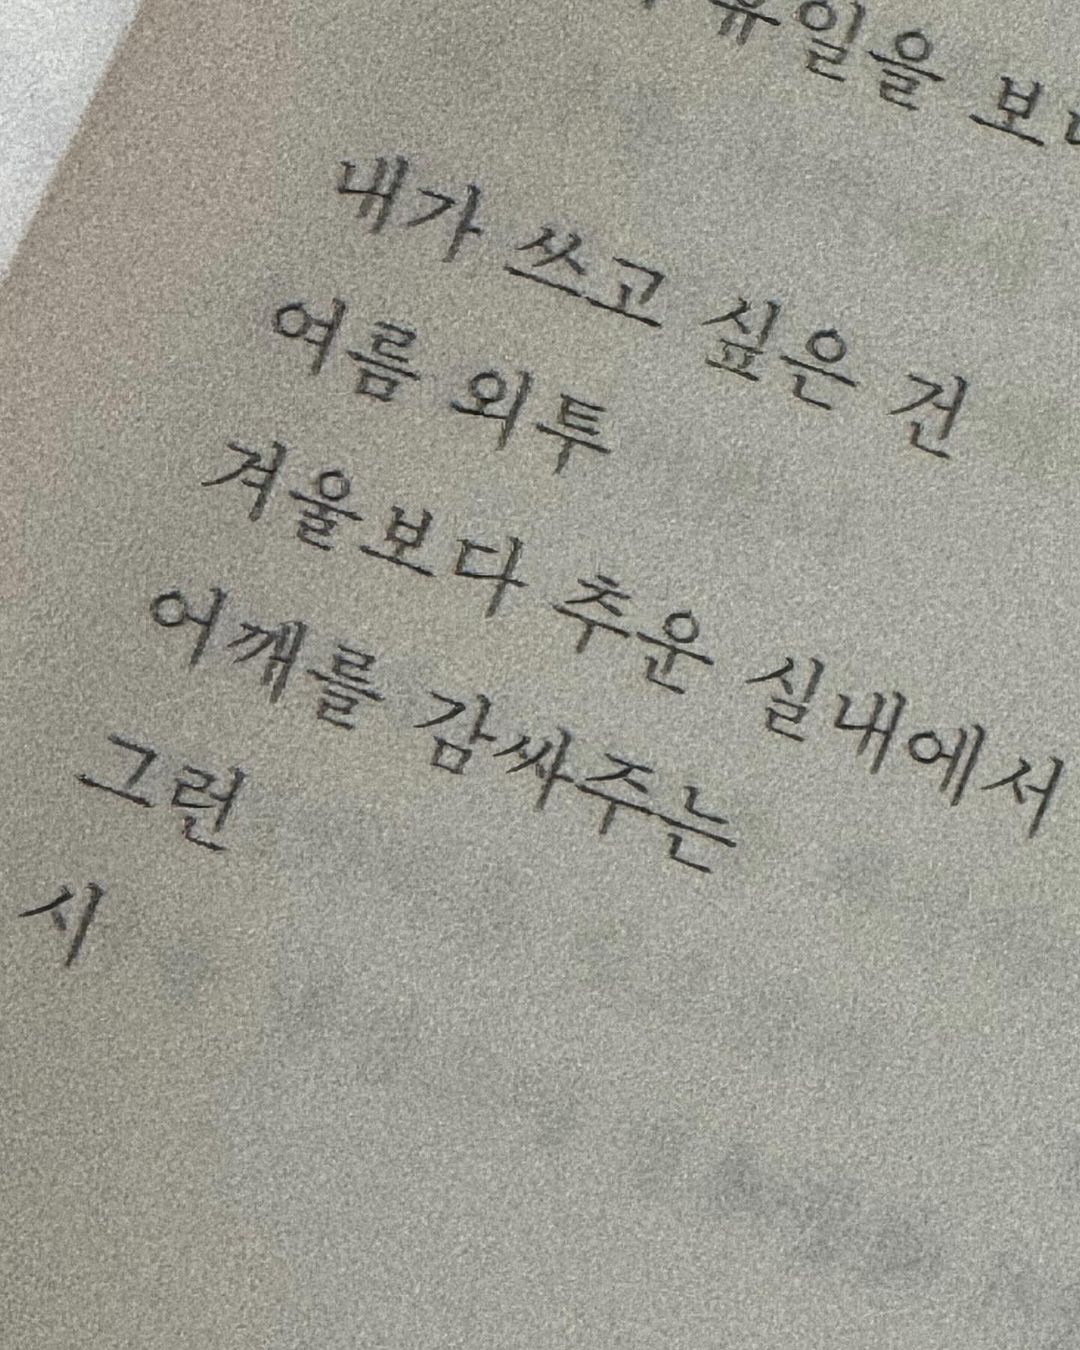 내가 쓰고 싶은 건
여름 외투
겨울보다 추운 실내에서
어깨를 감싸주는
그런
시